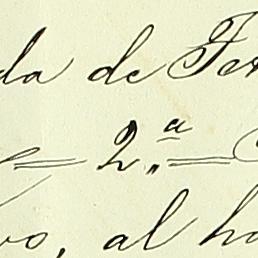 da de Fer
= 2.ª =
vo, al ho